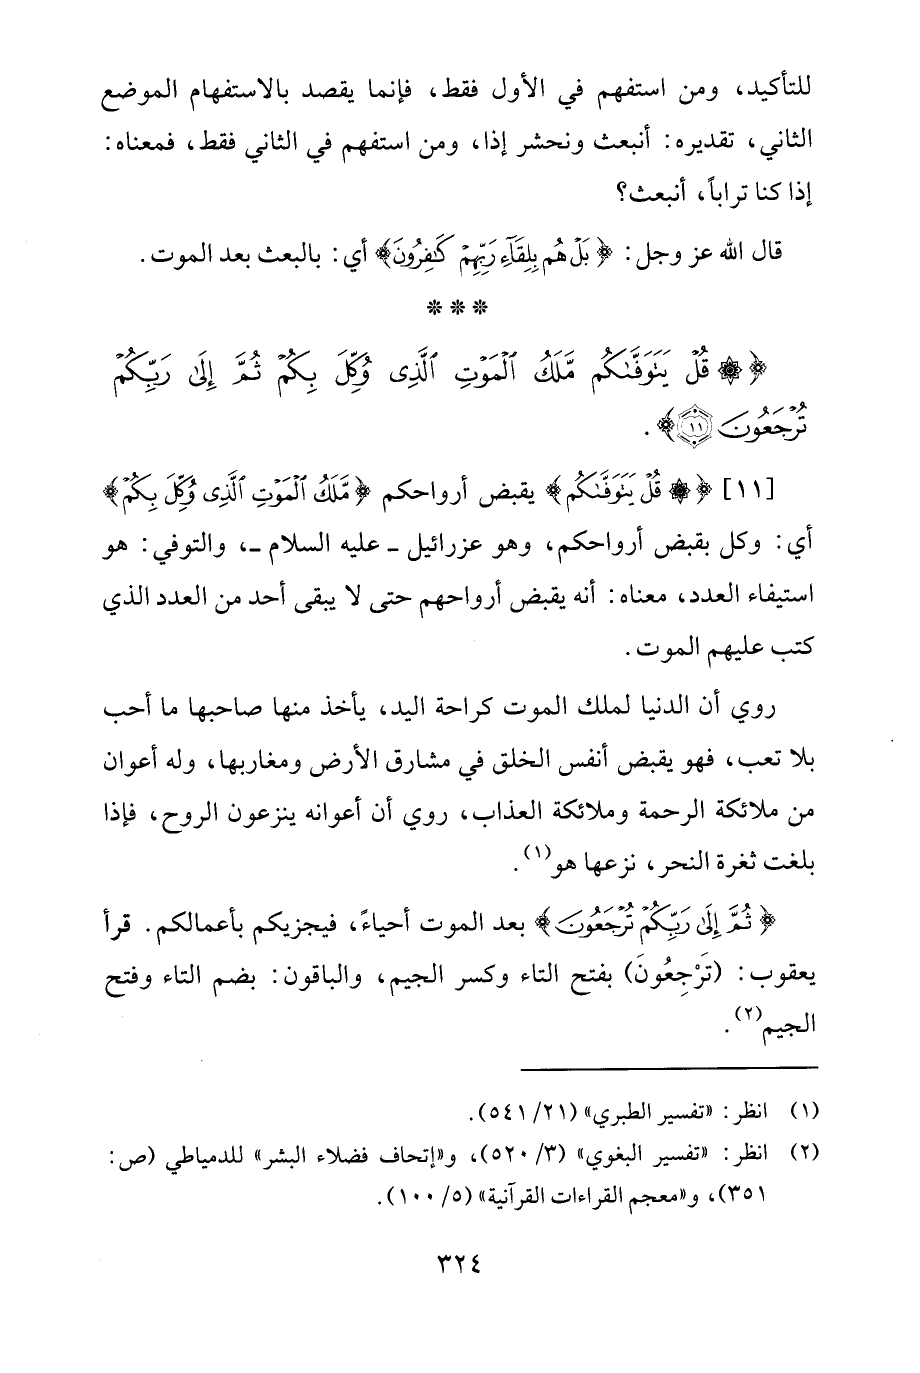 للتأكيد، ومن استفهم في الأول فقط، فإنما يقصد بالاستفهام الموضع
الثاني، تقديره: أنبعث ونحشر إذا، ومن استفهم في الثاني فقط، فمعناه:
إذا كنا تراباً، أنبعث؟
قال الله عز وجل: ﴿بَلْ هُم بِلِقَآءِ رَبِّهِمْ كَٰفِرُونَ﴾ أي: بالبعث بعد الموت.
* * *
﴿۞ قُلْ يَتَوَفَّىٰكُم مَّلَكُ ٱلْمَوْتِ ٱلَّذِى وُكِّلَ بِكُمْ ثُمَّ إِلَىٰ رَبِّكُمْ
تُرْجَعُونَ ١١﴾.
[١١] ﴿۞ قُلْ يَتَوَفَّىٰكُم﴾ يقبض أرواحكم ﴿مَّلَكُ ٱلْمَوْتِ ٱلَّذِى وُكِّلَ بِكُمْ﴾
أي: وكل بقبض أرواحكم، وهو عزرائيل ـ عليه السلام ـ، والتوفي: هو
استيفاء العدد، معناه: أنه يقبض أرواحهم حتى لا يبقى أحد من العدد الذي
كتب عليهم الموت.
روي أن الدنيا لملك الموت كراحة اليد، يأخذ منها صاحبها ما أحب
بلا تعب، فهو يقبض أنفس الخلق في مشارق الأرض ومغاربها، وله أعوان
من ملائكة الرحمة وملائكة العذاب، روي أن أعوانه ينزعون الروح، فإذا
بلغت ثغرة النحر، نزعها هو(١).
﴿ثُمَّ إِلَىٰ رَبِّكُمْ تُرْجَعُونَ﴾ بعد الموت أحياءً، فيجزيكم بأعمالكم. قرأ
يعقوب: (تَرْجِعُونَ) بفتح التاء وكسر الجيم، والباقون: بضم التاء وفتح
الجيم(٢).
(١) انظر: «تفسير الطبري» (٢١/ ٥٤١).
(٢) انظر: «تفسير البغوي» (٣/ ٥٢٠)، و«إتحاف فضلاء البشر» للدمياطي (ص:
٣٥١)، و«معجم القراءات القرآنية» (٥/ ١٠٠).
٣٢٤